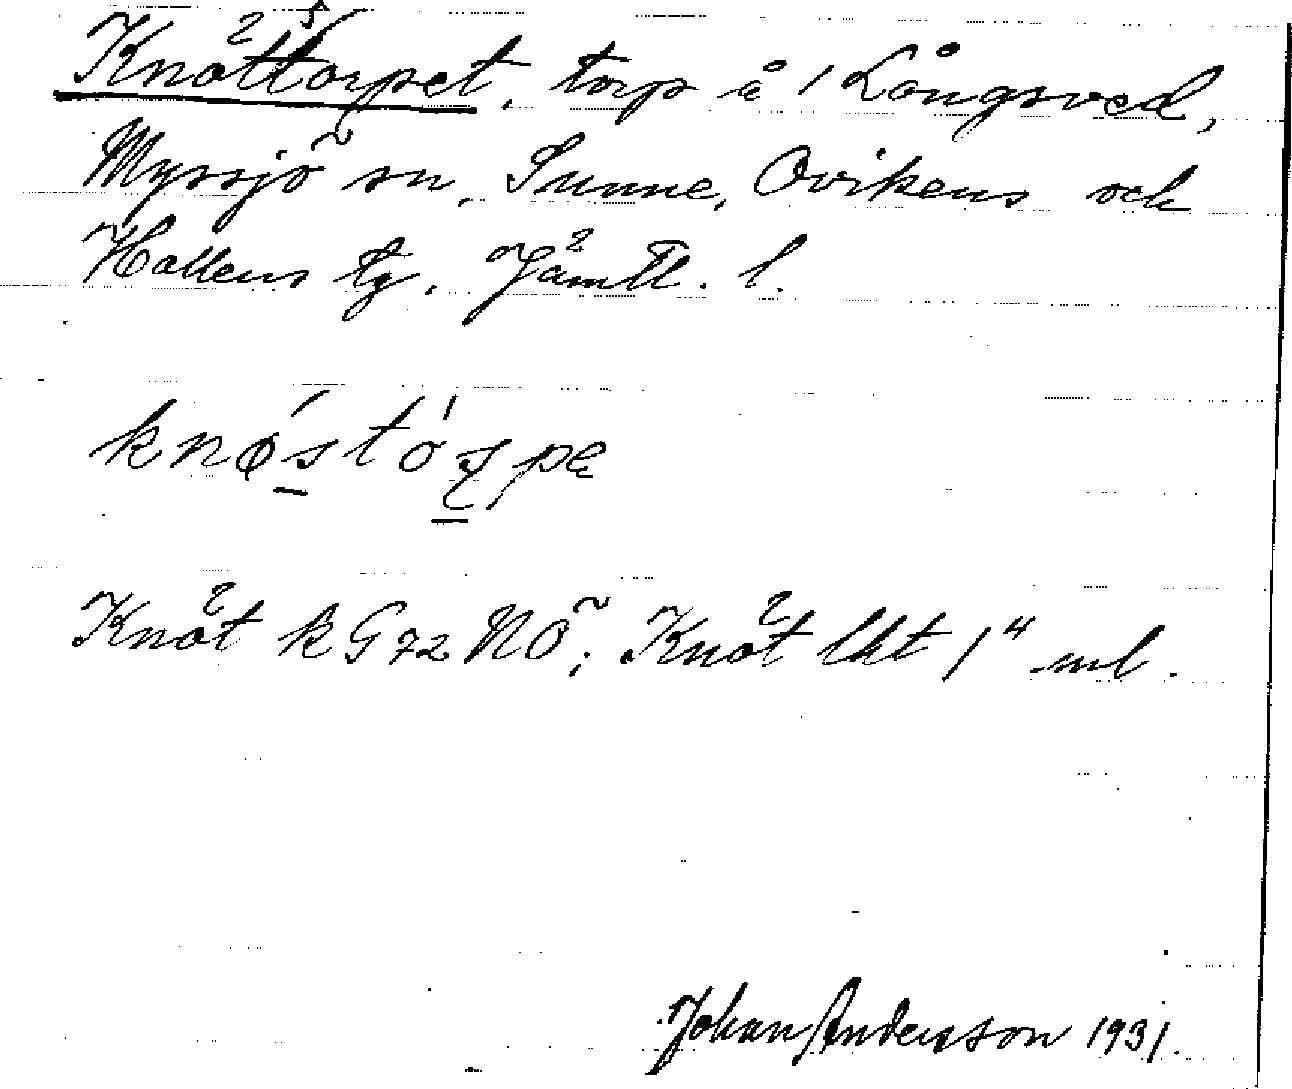 Knättorpet, torp å 1 Långsved,
Myssjö sn, Sunne, Ovikens och
Hallens tg, Jämtl. l.
knøstóspe
Knät kG72NÖ; Knät lht 1" ml.
Johan Anderson 1931.